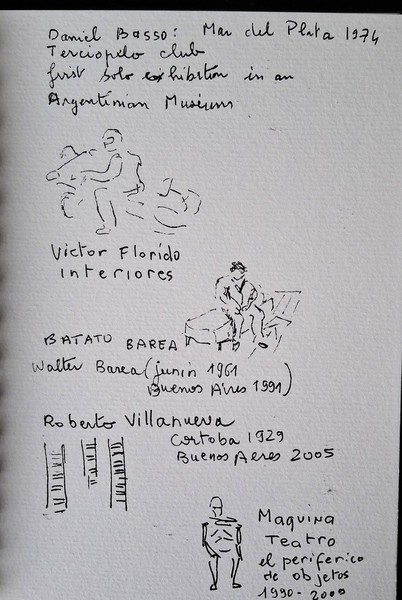 Daniel Basso: Mar del Plata 1974
Terciopelo club
first solo exhibition in an
Argentinian Museum
Victor Florido
interiores
BATATO BAREA
Walter Barea (junin 1961
Buenos Aires 1991)
Roberto Villanueva
Cortoba 1929
Buenos Aeres 2005
Maquina
Teatro
el periferico
de objetos
1990-2000